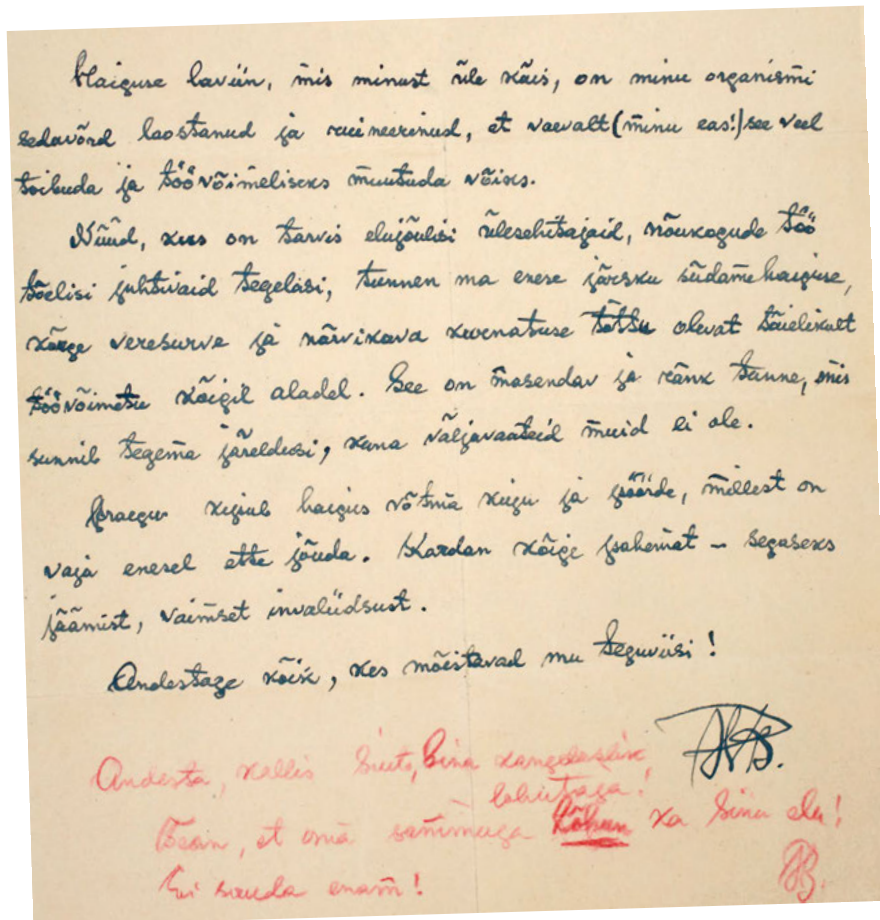 Haiguse laviin, mis minust üle käis, on minu organismi
sedavõrd laostanud ja ruineerinud, et vaevalt (minu eas!) see veel
toibuda ja töövõimeliseks muutuda võiks.
Nüüd, kus on tarvis elujõulisi ülesehitajaid, nõukogude töö
tõelisi juhtivaid tegelasi, tunnen ma enese järsku südamehaiguse,
kõrge veresurve ja närvikava kurnatuse tõttu olevat täielikult
töövõimetu kõigil aladel. See on masendav ja ränk tunne, mis
sunnib tegema järeldusi, kuna väljavaateid muid ei ole.
Praegu kipub haigus võtma kuju ja pöörde, millest on
vaja enesel ette jõuda. Kardan kõige pahemat – segaseks
jäämist, vaimset invaliidsust.
Andestage kõik, kes mõistavad mu teguviisi!
Andesta, kallis Sina kangelaslik
lohutaja!
Tean, et oma sammuga lõhun ka Sinu elu!
Ei suuda enam!